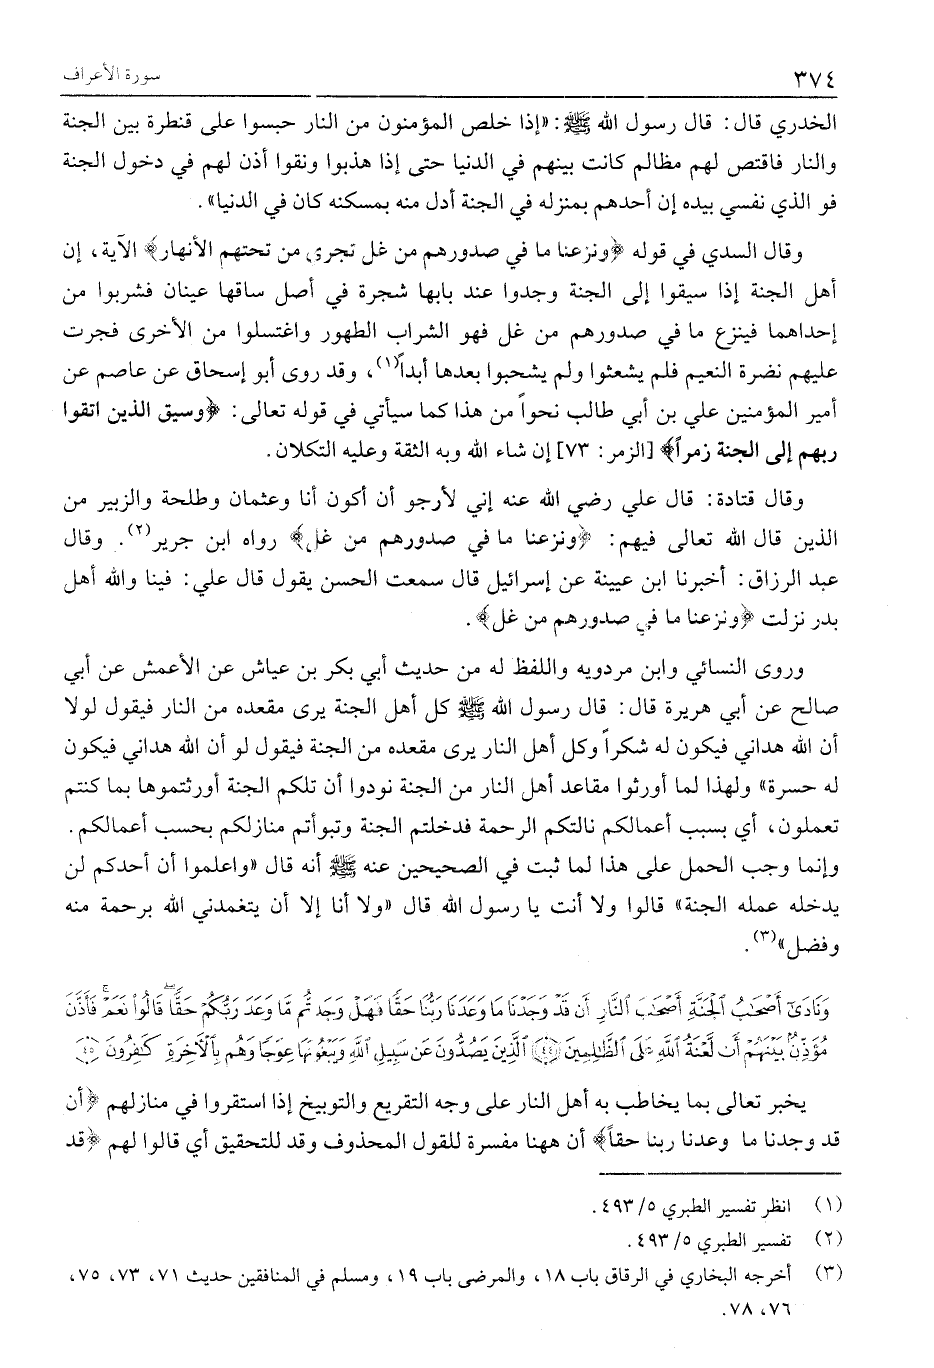 ٣٧٤
سورة الأعراف
الخدري قال: قال رسول الله ﷺ: «إذا خلص المؤمنون من النار حبسوا على قنطرة بين الجنة
والنار فاقتص لهم مظالم كانت بينهم في الدنيا حتى إذا هذبوا ونقوا أذن لهم في دخول الجنة
فو الذي نفسي بيده إن أحدهم بمنزله في الجنة أدل منه بمسكنه كان في الدنيا».
وقال السدي في قوله ﴿ونزعنا ما في صدورهم من غل تجري من تحتهم الأنهار﴾ الآية، إن
أهل الجنة إذا سيقوا إلى الجنة وجدوا عند بابها شجرة في أصل ساقها عينان فشربوا من
إحداهما فينزع ما في صدورهم من غل فهو الشراب الطهور واغتسلوا من الأخرى فجرت
عليهم نضرة النعيم فلم يشعثوا ولم يشحبوا بعدها أبداً(١)، وقد روى أبو إسحاق عن عاصم عن
أمير المؤمنين علي بن أبي طالب نحواً من هذا كما سيأتي في قوله تعالى: ﴿وسيق الذين اتقوا
ربهم إلى الجنة زمراً﴾ [الزمر: ٧٣] إن شاء الله وبه الثقة وعليه التكلان.
وقال قتادة: قال علي رضي الله عنه إني لأرجو أن أكون أنا وعثمان وطلحة والزبير من
الذين قال الله تعالى فيهم: ﴿ونزعنا ما في صدورهم من غل﴾ رواه ابن جرير(٢). وقال
عبد الرزاق: أخبرنا ابن عيينة عن إسرائيل قال سمعت الحسن يقول قال علي: فينا والله أهل
بدر نزلت ﴿ونزعنا ما في صدورهم من غل﴾.
وروى النسائي وابن مردويه واللفظ له من حديث أبي بكر بن عياش عن الأعمش عن أبي
صالح عن أبي هريرة قال: قال رسول الله ﷺ كل أهل الجنة يرى مقعده من النار فيقول لولا
أن الله هداني فيكون له شكراً وكل أهل النار يرى مقعده من الجنة فيقول لو أن الله هداني فيكون
له حسرة» ولهذا لما أورثوا مقاعد أهل النار من الجنة نودوا أن تلكم الجنة أورثتموها بما كنتم
تعملون، أي بسبب أعمالكم نالتكم الرحمة فدخلتم الجنة وتبوأتم منازلكم بحسب أعمالكم.
وإنما وجب الحمل على هذا لما ثبت في الصحيحين عنه ﷺ أنه قال «واعلموا أن أحدكم لن
يدخله عمله الجنة» قالوا ولا أنت يا رسول الله قال «ولا أنا إلا أن يتغمدني الله برحمة منه
وفضل»(٣).
وَنَادَىٰٓ أَصْحَٰبُ ٱلْجَنَّةِ أَصْحَٰبَ ٱلنَّارِ أَن قَدْ وَجَدْنَا مَا وَعَدَنَا رَبُّنَا حَقًّا فَهَلْ وَجَدتُّم مَّا وَعَدَ رَبُّكُمْ حَقًّا ۖ قَالُوا۟ نَعَمْ ۚ فَأَذَّنَ
مُؤَذِّنٌۢ بَيْنَهُمْ أَن لَّعْنَةُ ٱللَّهِ عَلَى ٱلظَّٰلِمِينَ ﴿٤٤﴾ ٱلَّذِينَ يَصُدُّونَ عَن سَبِيلِ ٱللَّهِ وَيَبْغُونَهَا عِوَجًا وَهُم بِٱلْءَاخِرَةِ كَٰفِرُونَ ﴿٤٥﴾
يخبر تعالى بما يخاطب به أهل النار على وجه التقريع والتوبيخ إذا استقروا في منازلهم ﴿أن
قد وجدنا ما وعدنا ربنا حقاً﴾ أن ههنا مفسرة للقول المحذوف وقد للتحقيق أي قالوا لهم ﴿قد
(١) انظر تفسير الطبري ٥/ ٤٩٣.
(٢) تفسير الطبري ٥/ ٤٩٣.
(٣) أخرجه البخاري في الرقاق باب ١٨، والمرضى باب ١٩، ومسلم في المنافقين حديث ٧١، ٧٣، ٧٥،
٧٦، ٧٨.